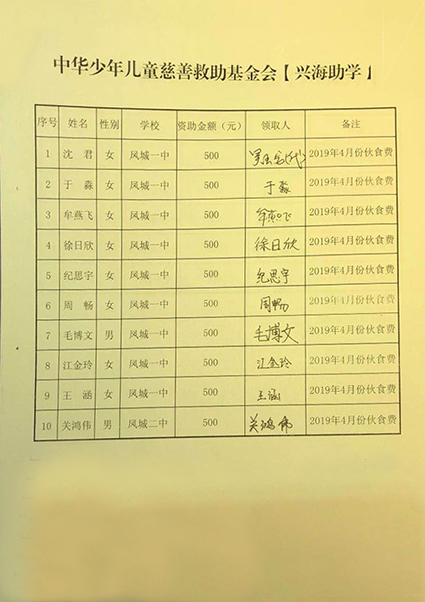 中华少年儿童慈善救助基金会【兴海助学】
序号 姓名 性别 学校 资助金额（元） 领取人 备注
1 沈君 女 凤城一中 500 （代） 2019年4月份伙食费
2 于淼 女 凤城一中 500 于淼 2019年4月份伙食费
3 牟燕飞 女 凤城一中 500 牟燕飞 2019年4月份伙食费
4 徐日欣 女 凤城一中 500 徐日欣 2019年4月份伙食费
5 纪思宇 女 凤城一中 500 纪思宇 2019年4月份伙食费
6 周畅 女 凤城一中 500 周畅 2019年4月份伙食费
7 毛博文 男 凤城一中 500 毛博文 2019年4月份伙食费
8 江金玲 女 凤城一中 500 江金玲 2019年4月份伙食费
9 王涵 女 凤城一中 500 王涵 2019年4月份伙食费
10 关鸿伟 男 凤城二中 500 关鸿伟 2019年4月份伙食费